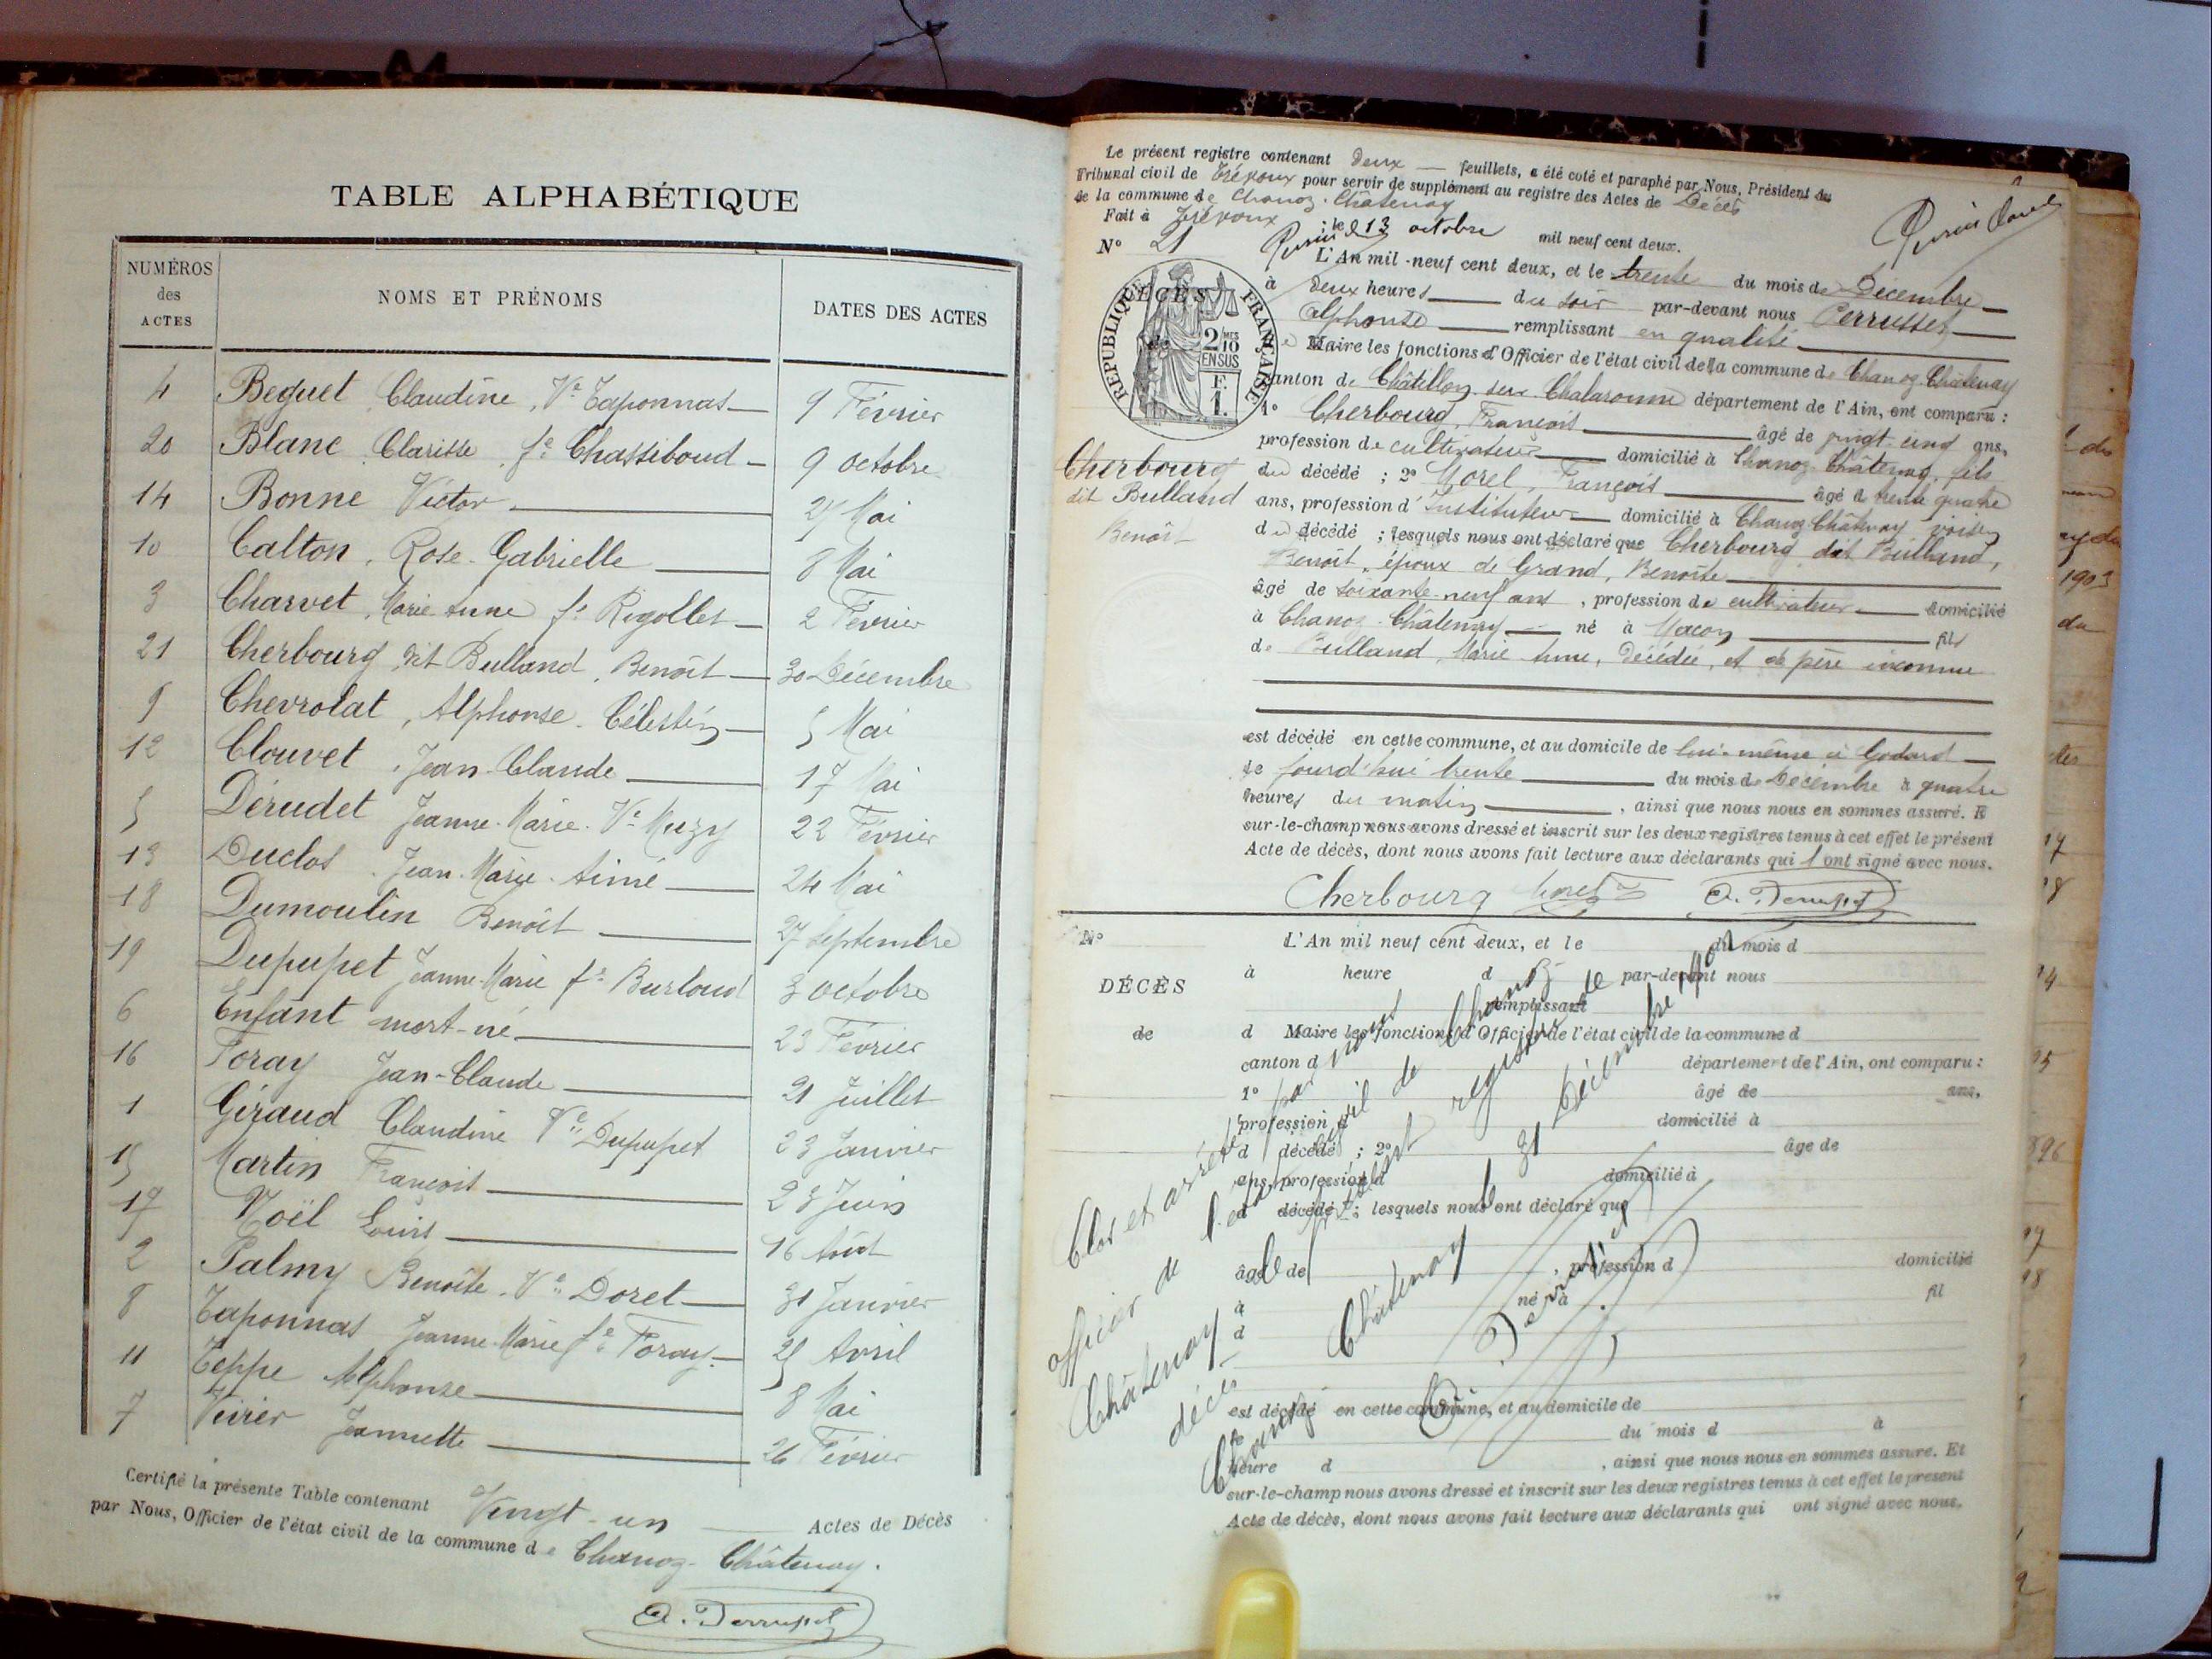 TABLE ALPHABÉTIQUE
NUMÉROS des ACTES
NOMS ET PRÉNOMS
DATES DES ACTES
4 Beguet Claudine, Vᵉ Taponnas 9 Février
20 Blanc Clarisse fᵉ Chassiboud 9 octobre
14 Bonne Victor 27 Mai
10 Calton, Rose Gabrielle 8 Mai
3 Charvet, Marie Anne fᵉ Rigollet 2 Février
21 Cherbourg dit Bulland, Benoît 30 Décembre
9 Chevrolat, Alphonse Célestin 5 Mai
12 Clouvet, Jean-Claude 17 Mai
5 Dérudet Jeanne-Marie Vᵉ Muzy 22 Février
13 Duclos Jean-Marie-Aimé 24 Mai
18 Dumoulin Benoît 27 septembre
19 Dupupet Jeanne-Marie fᵉ Burtoud 3 octobre
6 Enfant mort-né 23 Février
16 Foray Jean-Claude 21 Juillet
1 Giraud Claudine Vᵉ Dupupet 23 Janvier
15 Martin François 23 Juin
17 Noël Louis 16 Août
2 Palmy Benoîte Vᵉ Doret 31 Janvier
8 Taponnas Jeanne-Marie fᵉ Foray 25 Avril
11 Teppe Alphonse 8 Mai
7 Jeannette 26 Février
Certifié la présente Table contenant Vingt-un Actes de Décès
par Nous, Officier de l'état civil de la commune de Chanoz-Châtenay.
Le présent registre contenant deux feuillets, a été coté et paraphé par Nous, Président du
Tribunal civil de Trévoux pour servir de supplément au registre des Actes de Décès
de la commune de Chanoz-Châtenay
Fait à Trévoux, le 13 octobre mil neuf cent deux.
N° 21
L'An mil neuf cent deux, et le trente du mois de Décembre
DÉCÈS
RÉPUBLIQUE FRANÇAISE
2/10 MES EN SUS
F. 1.
à deux heures du soir par-devant nous Perrusset
Alphonse remplissant en qualité
de Maire les fonctions d'Officier de l'état civil de la commune de Chanoz-Châtenay
canton de Châtillon-sur-Chalaronne département de l'Ain, ont comparu :
1° Cherbourg, François âgé de vingt cinq ans,
profession de cultivateur domicilié à Chanoz-Châtenay, fils
Cherbourg
dit Bulland
Benoît
du décédé ; 2° Morel, François âgé de trente quatre
ans, profession d'Instituteur domicilié à Chanoz-Châtenay voisin
du décédé ; lesquels nous ont déclaré que Cherbourg dit Bulland,
Benoît, époux de Grand, Benoîte
âgé de soixante-neuf ans, profession de cultivateur domicilié
à Chanoz-Châtenay né à Macon fils
de Bulland, Marie Anne, décédée, et de père inconnu
est décédé en cette commune, et au domicile de lui-même à Godard
le jourd'hui trente du mois de Décembre à quatre
heures du matin, ainsi que nous nous en sommes assuré. Et
sur-le-champ nous avons dressé et inscrit sur les deux registres tenus à cet effet le présent
Acte de décès, dont nous avons fait lecture aux déclarants qui l'ont signé avec nous.
Cherbourg Morel
N°
L'An mil neuf cent deux, et le du mois d
DÉCÈS
à heure d par-devant nous
remplissant
de
d Maire les fonctions d'Officier de l'état civil de la commune d
canton d département de l'Ain, ont comparu :
1° âgé de ans,
profession d domicilié à
d décédé ; 2° âgé de
ans, profession d domicilié à
d décédé ; lesquels nous ont déclaré que
âgé de , profession d domicilié
à né à fil
d
est décédé en cette commune, et au domicile de
le du mois d à
heure d , ainsi que nous nous en sommes assuré. Et
sur-le-champ nous avons dressé et inscrit sur les deux registres tenus à cet effet le présent
Acte de décès, dont nous avons fait lecture aux déclarants qui ont signé avec nous.
Clos et arrêté par nous
officier de l'état civil de Chanoz
Châtenay le présent registre de
décès le 31 Décembre 1902
Chanoz Châtenay
1903